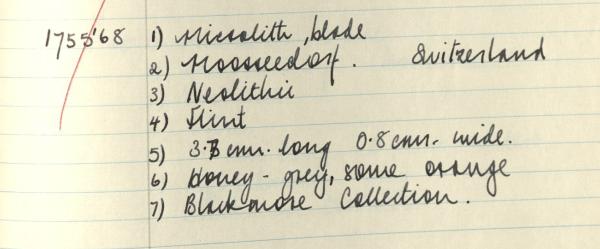 1755'68 1) Microlith, blade
2) Moosseedorf. Switzerland
3) Neolithic
4) Flint
5) 3.7 cms. long 0.8 cms. wide.
6) Honey-grey, some orange
7) Blackmore Collection.